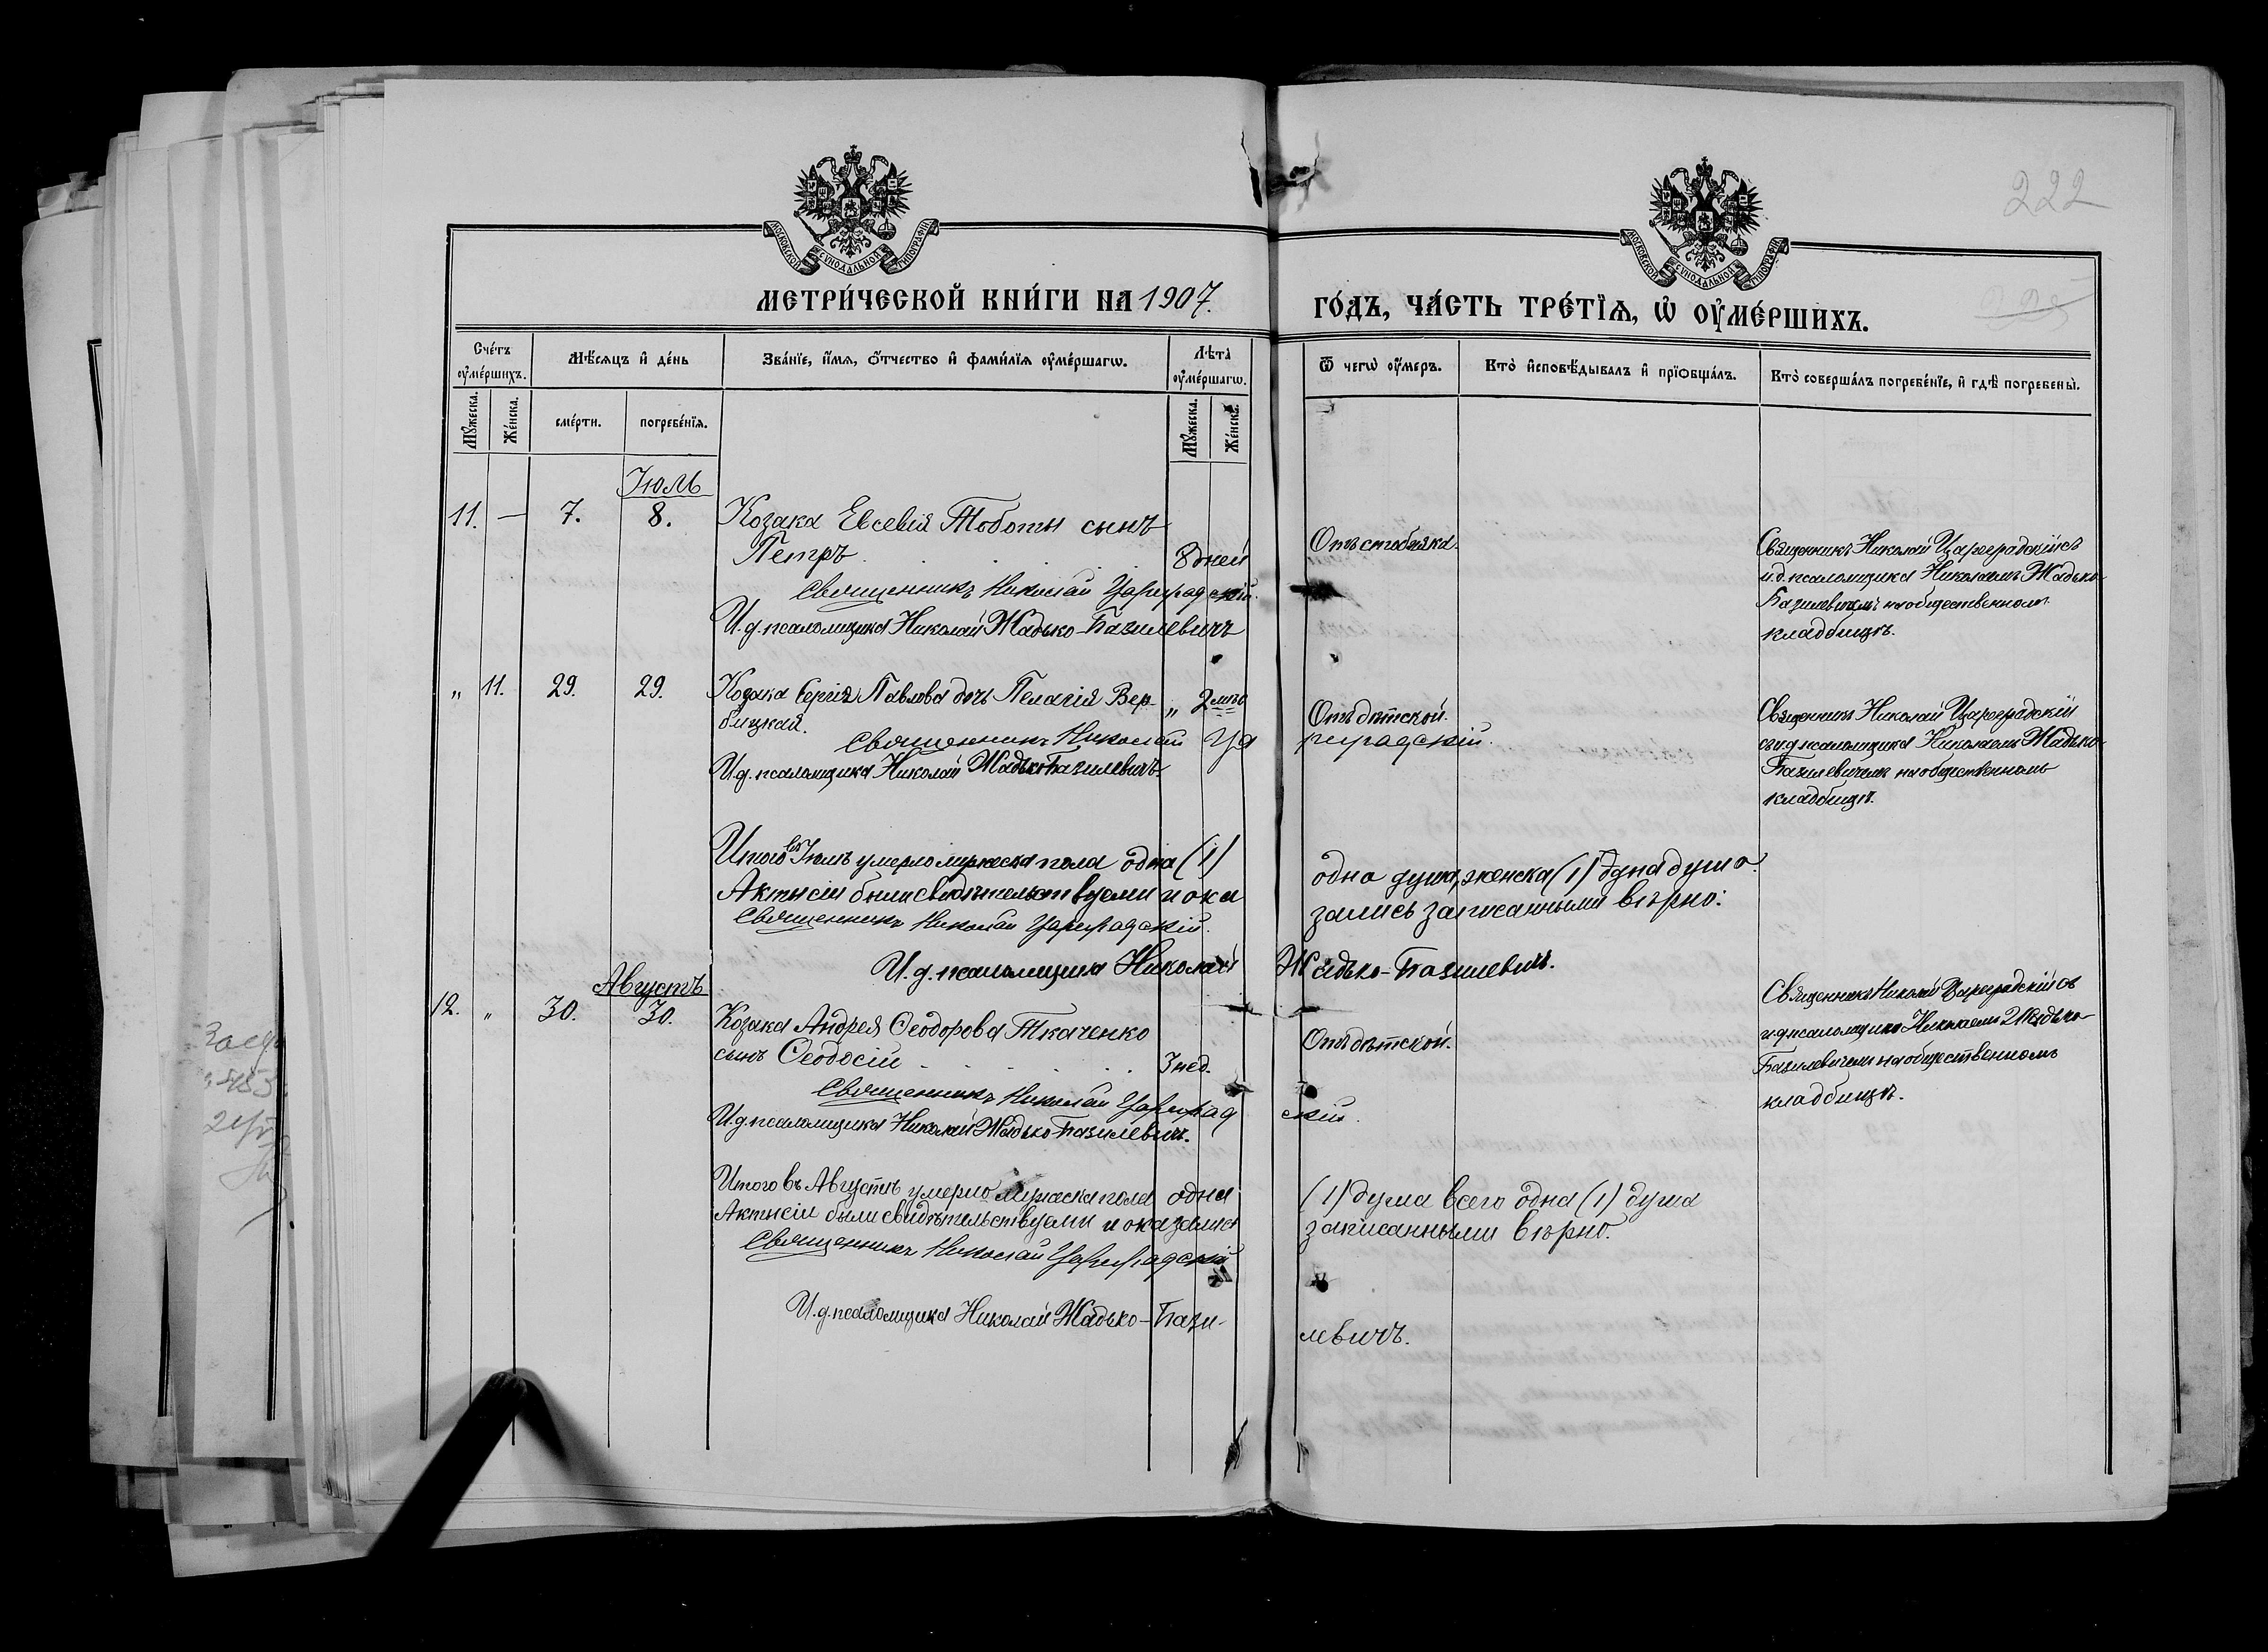 222
МОСКОВСКОЙ СУНОДАЛЬНОЙ ТИПОГРАФІИ
МОСКОВСКОЙ СУНОДАЛЬНОЙ ТИПОГРАФІИ
МЕТРИ́ЧЕСКОЙ КНИ́ГИ НА 1907.
ГО́ДЪ, ЧА́СТЬ ТРЕ́ТІѦ, Ѡ҆ ОУ҆МЕ́РШИХЪ.
Сче́тъ оу҆ме́ршихъ.
Мѣ́сѧцъ и҆ де́нь
Зва́нїе, и҆́мѧ, ѻ҆́тчество и҆ фами́лїѧ оу҆ме́ршагѡ.
Лѣта̀ оу҆ме́ршагѡ.
Ѿ чегѡ̀ оу҆́меръ.
Кто̀ и҆сповѣ́дывалъ и҆ прїѡбща́лъ.
Кто̀ соверша́лъ погребе́нїе, и҆ гдѣ̀ погребены̀.
Мꙋ́жеска.
Же́нска.
сме́рти.
погребе́нїѧ.
Мꙋ́жеска.
Же́нска.
Іюль
11. — 7. 8. Козака Евсевія Тоботы сынъ
Петръ 8 дней
Священникъ Николай Цареградскій.
И.д. псаломщика Николай Жадько-Базилевичъ
Отъ стобняка.
Священникъ Николай Цареградскій съ
и.д. псаломщика Николаемъ Жадько-
Базилевичемъ на общественномъ
кладбищѣ.
„ 11. 29. 29. Козака Сергія Павлова дочь Пелагія Вер-
бицкая. „ 2 лѣтъ
Священникъ Николай Ца
реградскій.
И.д. псаломщика Николай Жадько-Базилевичъ
Отъ дѣтской.
Священникъ Николай Цареградскій
съ и.д. псаломщика Николаемъ Жадько-
Базилевичемъ на общественномъ
кладбищѣ.
Итого въ Іюлѣ умерло мужеска пола одна (1)
одна душа, женска (1) одна душа.
Акты сіи были свидѣтельствуеми и ока
зались записанными вѣрно:
Священникъ Николай Цареградскій.
И.д. псаломщика Николай
Жадько-Базилевичъ.
Августъ
12. „ 30. 30. Козака Андрея Ѳеодорова Ткаченко
сынъ Ѳеодосій 3 нед.
Священникъ Николай Цареград
скій.
И.д. псаломщика Николай Жадько-Базилевичъ.
Отъ дѣтской.
Священникъ Николай Цареградскій съ
и.д. псаломщика Николаемъ Жадько-
Базилевичемъ на общественномъ
кладбищѣ.
Итого въ Августѣ умерло мужеска пола одна
(1) душа всего одна (1) душа
Акты сіи были свидѣтельствуеми и оказались
записанными вѣрно.
Священникъ Николай Цареградскій
И.д. псаломщика Николай Жадько-Бази-
левичъ.